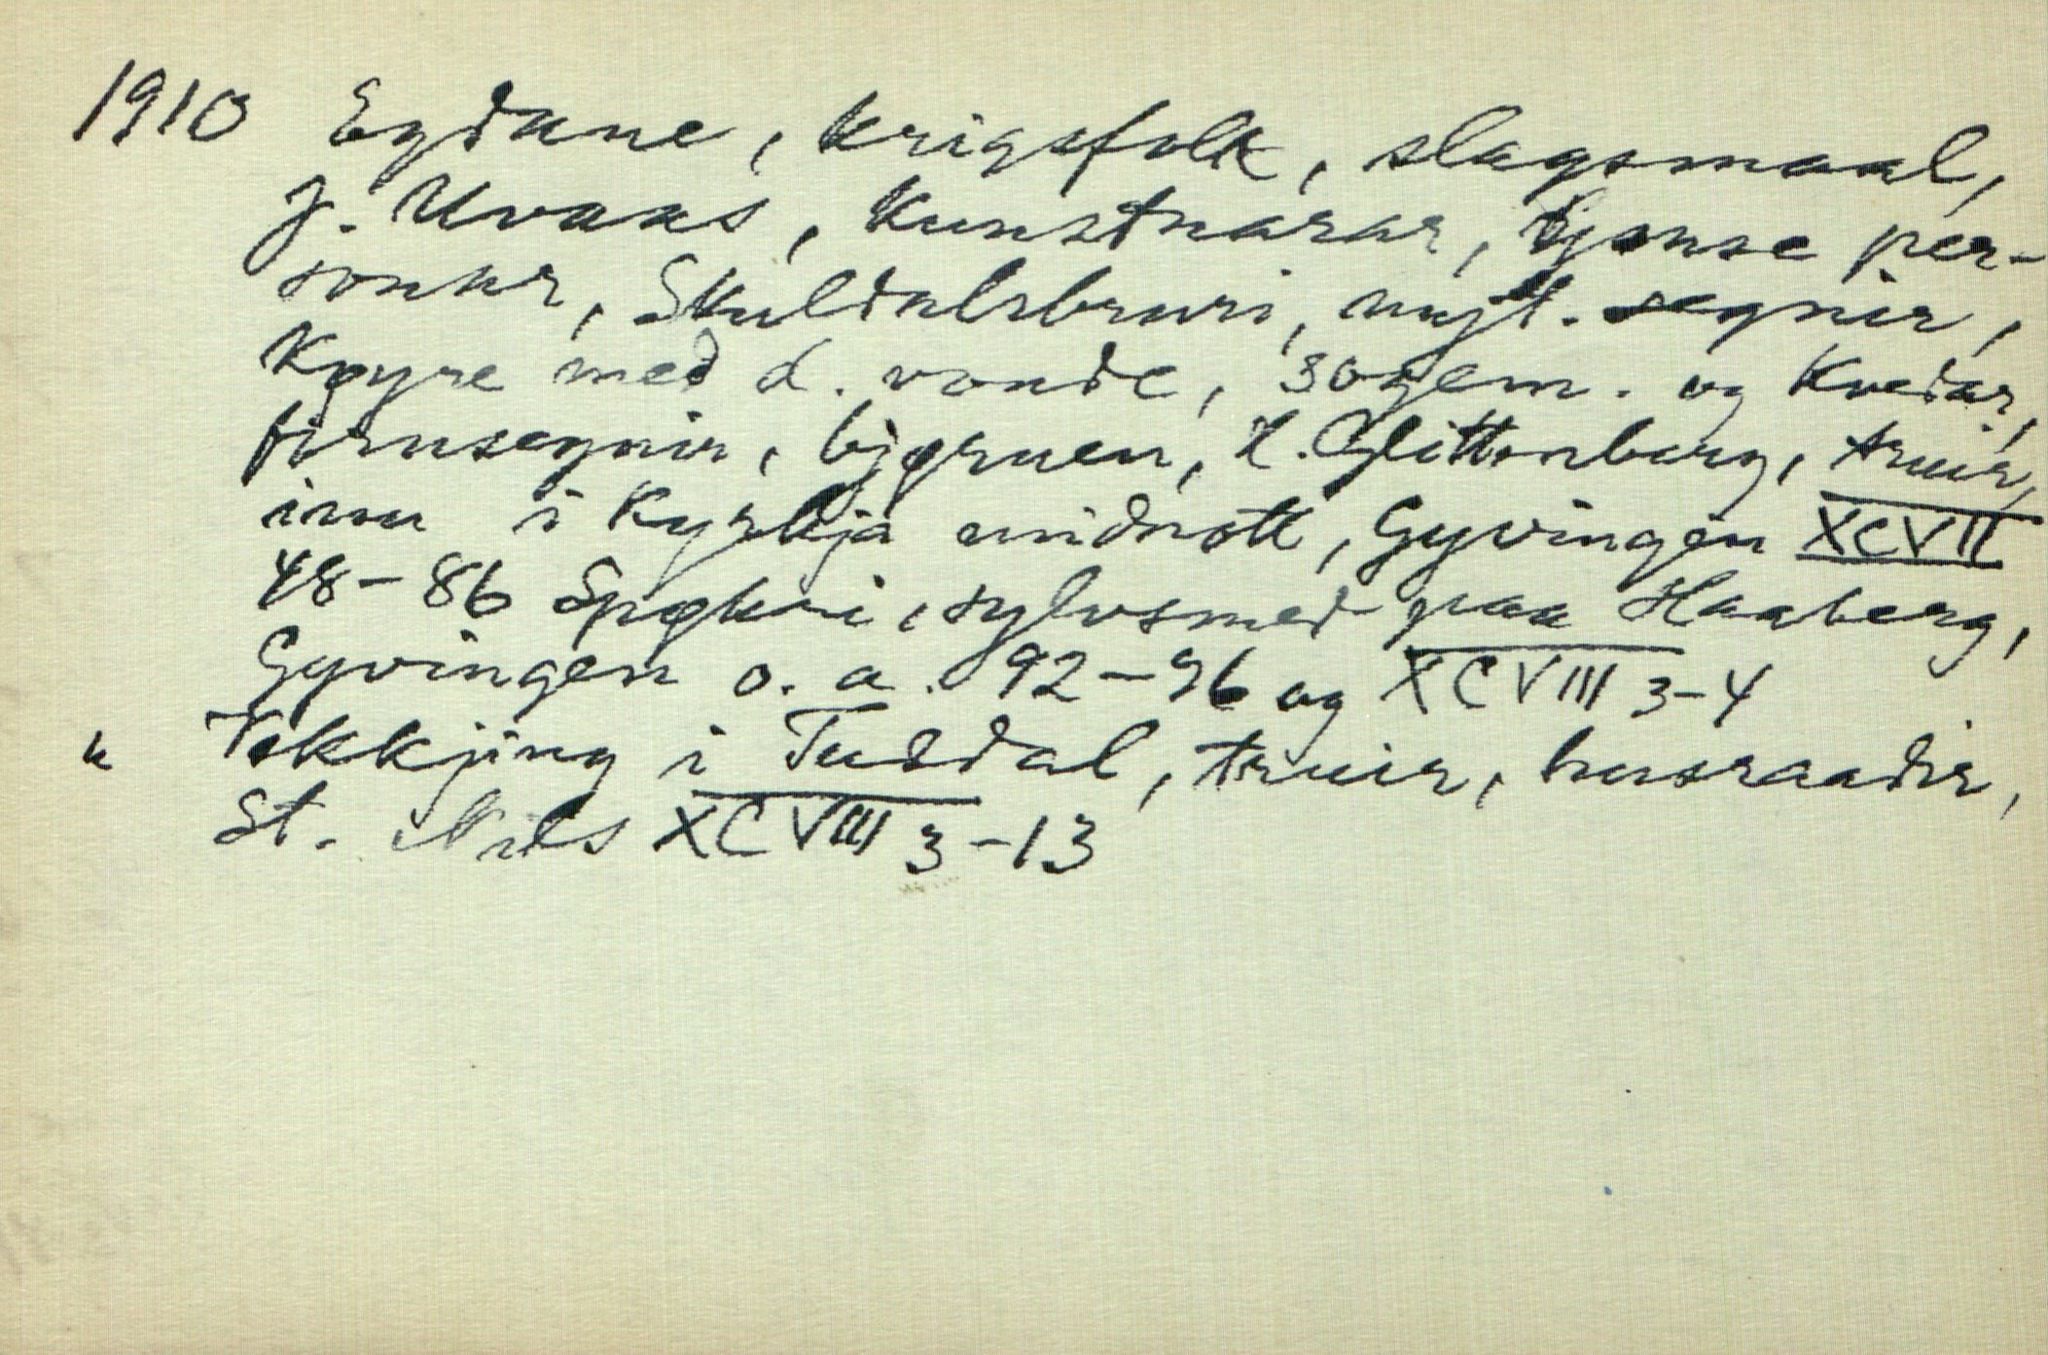 1910 Egdane, krigsfolk, slagsmaal,
J. Uvaas, kunstnarar, kjende per-
sonar, Skuldalsbruri, mytt. segnir,
Køyre med d. vonde, sogem. og kvedar,
finnsegnir, bjørnen, H. Glittenberg, truir,
inn i kyrkja midnott, Gyvingen XCVII
48-86 Spøkeri, sylvsmed paa Haaberg,
Gyvingen o. a. 92-96 og XCVIII 3-4
" Tekkjing i Tuddal, truir, husraadir,
St. Nils XCVIII 3-13